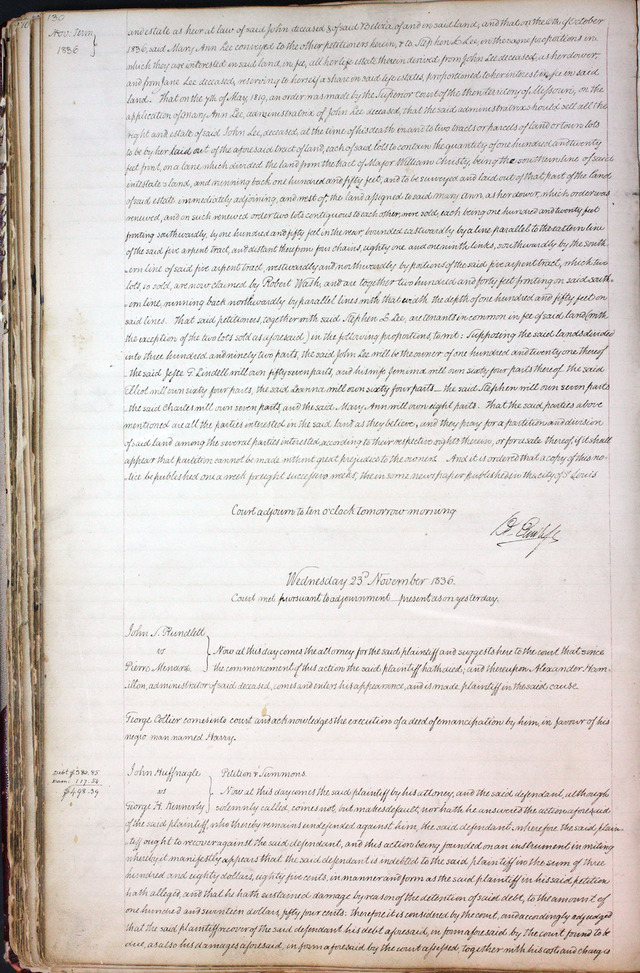 130
Nov: Term
1836
and estate as heir at law of said John deceased & of said Beloia, of and in said land; and that on the 16th of October
1836, said Mary Ann Lee conveyed to the other petitioners herein, & to Stephen L Lee, in the same proportions in
which they are interested in said land, in fee, all her life estate therein derived from John Lee deceased, as her dower,
and from Jane Lee deceased, reserving to herself a share in said life estates, proportioned to her interest in fee in said
land. That on the 7th of May 1819, an order was made by the Superior Court of the then territory of Missouri, on the
application of Mary Ann Lee, administratrix of John Lee deceased, that the said administratrix should sell all the
right and estate of said John Lee, deceased, at the time of his death in and to two tracts or parcels of land or town lots
to be by her laid out of the aforesaid tract of land, each of said lots to contain the quantity of one hundred and twenty
feet front, on a lane which divided the land from the tract of Major William Christy, being the southern line of said
intestate's land, and running back one hundred and fifty feet, and to be surveyed and laid out of that part of the land
of said estate immediately adjoining, and west of, the land assigned to said Mary Ann, as her dower, which order was
renewed, and on such renewed order two lots contiguous to each other, were sold, each being one hundred and twenty feet
fronting southwardly, by one hundred and fifty feet on the rear, bounded eastwardly by a line parallel to the eastern line
of the said five arpent tract, and distant therefrom four chains, eighty one and one ninth links, southwardly by the south
ern line of said five arpent tract, westwardly and northwardly by portions of the said five arpent tract, which two
lots, so sold, are now claimed by Robert Wash, and are together two hundred and forty feet fronting on said south-
ern line, running back northwardly by parallel lines with that width the depth of one hundred and fifty feet on
said lines. That said petitioners, together with said Stephen L Lee, are tenants in common in fee of said land (with
the exception of the two lots sold as aforesaid) in the following proportions, to wit: Supposing the said lands divided
into three hundred and ninety two parts, the said John Lee will be the owner of one hundred and twenty one thereof
the said Jesse G. Lindell will own fifty seven parts, and his wife Jemima will own sixty four parts thereof the said
Elliot will own sixty four parts, the said Leanna will own sixty four parts — the said Stephen will own seven parts
the said Charles will own seven parts, and the said Mary Ann will own eight parts. That the said parties above
mentioned are all the parties interested in the said land as they believe, and they pray for a partition and division
of said land among the several parties interested, according to their respective rights therein, or for a sale thereof, if it shall
appear that partition cannot be made without great prejudice to the owners. And it is ordered that a copy of this no-
tice be published once a week for eight successive weeks, then in some newspaper published in the city of St Louis
Court adjourn to ten o'clock tomorrow morning
Wednesday 23d November 1836.
Court met pursuant to adjournment — present as on yesterday.
John S. Rundlett
vs
Pierre Menard
Now at this day comes the attorney for the said plaintiff and suggests here to the court that since
the commencement of this action the said plaintiff hath died; and thereupon Alexander Ham-
ilton, administrator of said deceased, comes and enters his appearance, and is made plaintiff in the said cause.
George Collier comes into court and acknowledges the execution of a deed of emancipation by him, in favour of his
negro man named Harry.
Debt $380.85
Dam: 117.54
$498.39
John Huffnagle
vs
George H. Kennerly
Petition & Summons.
Now at this day comes the said plaintiff by his attorney, and the said defendant, although
solemnly called, comes not, but makes default, nor hath he answered the action aforesaid
of the said plaintiff, who thereby remains undefended against him, the said defendant: wherefore the said plain-
tiff ought to recover against the said defendant, and this action being founded on an instrument in writing
whereby it manifestly appears that the said defendant is indebted to the said plaintiff in the sum of three
hundred and eighty dollars, eighty five cents, in manner and form as the said plaintiff in his said petition
hath alleged, and that he hath sustained damage by reason of the detention of said debt, to the amount of
one hundred and seventeen dollars, fifty four cents: therefore it is considered by the court, and accordingly adjudged
that the said plaintiff recover of the said defendant his debt aforesaid, in form aforesaid by the court found to be
due, as also his damages aforesaid, in form aforesaid by the court assessed, together with his costs and charges